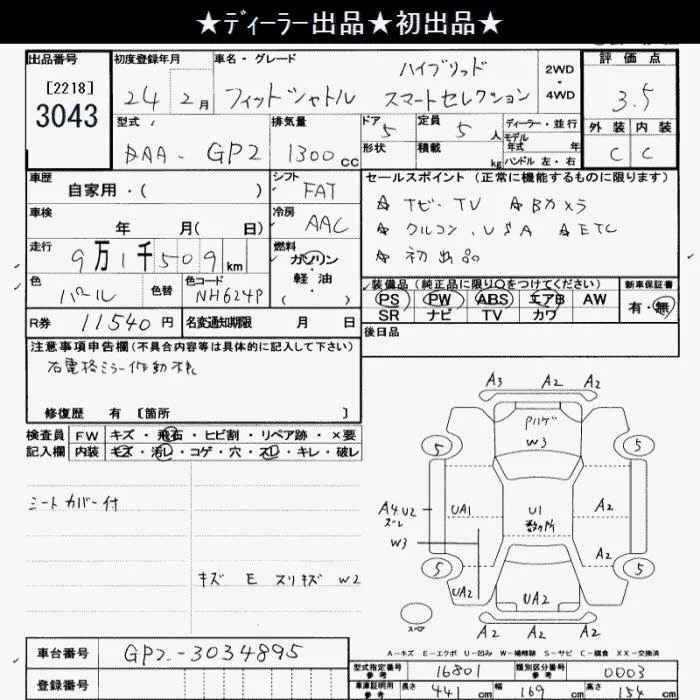 ★ディーラー出品★初出品★
出品番号
[2218]
3043
初度登録年月
24 2月
車名・グレード
ハイブリッド
フィットシャトル スマートセレクション
2WD・4WD
評価点
3.5
外装 内装
C C
型式
DAA-GP2
排気量
1300cc
ドア 5
形状
定員 5人
積載 kg
ディーラー・並行
モデル年式 年
ハンドル 左・右
車歴
自家用・( )
シフト
FAT
車検
年 月( 日)
冷房
AAC
走行
9万1千509km
燃料
ガソリン
軽油
・( )
色
パール
色替
色コード
NH624P
R券 11540円
名変通知期限 月 日
セールスポイント (正常に機能するものに限ります)
☆ナビ・TV ☆Bカメラ
☆クルコン.VSA ☆ETC
☆初出品
装備品(純正品に限り○をつけてください)
PS PW ABS エアB AW
SR ナビ TV カワ
新車保証書
有・無
後日品
注意事項申告欄(不具合内容等は具体的に記入して下さい)
右電格ミラー作動不良
修復歴 有 [箇所 ]
検査員記入欄
FW キズ・飛石・ヒビ割・リペア跡・×要
内装 キズ・汚レ・コゲ・穴・スレ・キレ・破レ
シートカバー付
キズ E スリキズ W2
A3 A2 A2
ハゲ
W3
5 5
A4.U2
ズレ
UA1
U1
数ヶ所
A2
W3
A2
5 5
UA2
UA2
A2 A2 A2
スペア
A-キズ E-エクボ U-凹み W-補修跡 S-サビ C-腐食 XX-交換済
車台番号
GP2-3034895
登録番号
型式指定番号 参考
16801
類別区分番号 参考
0003
車庫証明用 参考
長さ 441cm 幅 169cm 高さ 154cm